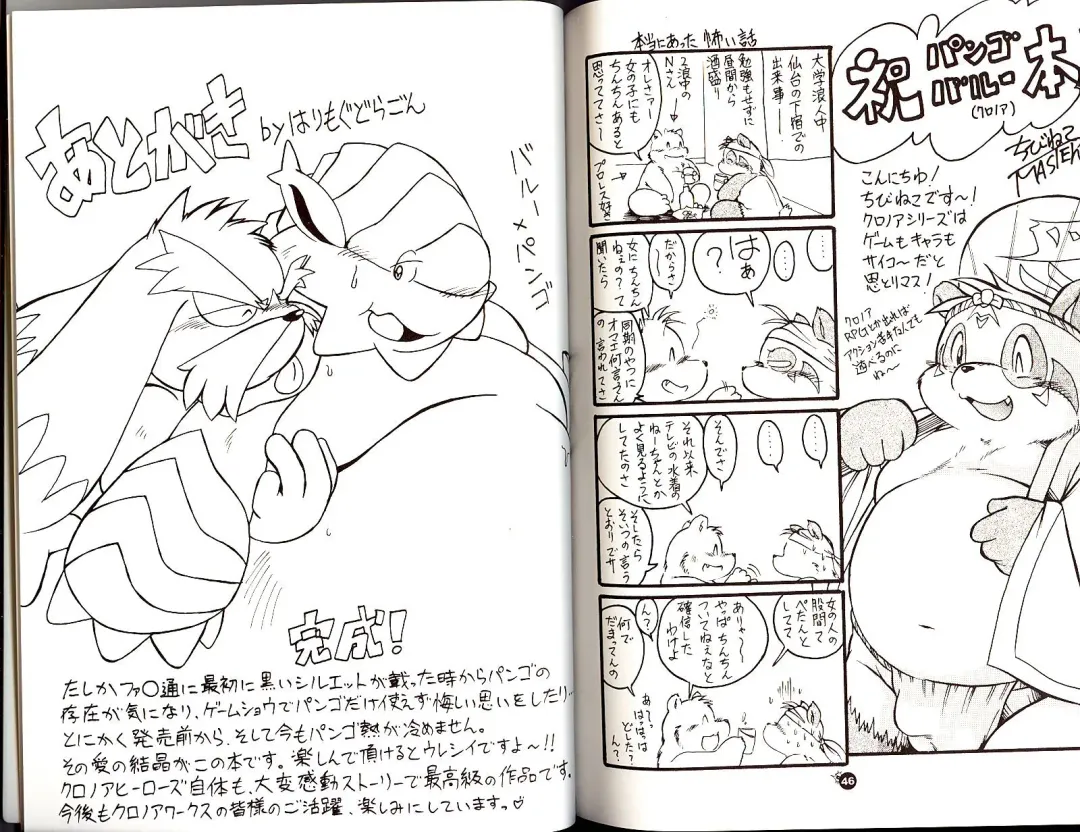 あとがき
byはりもぐどらごん
バルー×パンゴ
完成!
たしかファ〇通に最初に黒いシルエットが載った時からパンゴの
存在が気になり、ゲームショウでパンゴだけ使えず悔しい思いをしたり…
とにかく発売前から、そして今もパンゴ熱が冷めません。
その愛の結晶がこの本です。楽しんで頂けるとウレシイですよ〜!!
クロノアヒーローズ自体も、大変感動ストーリーで最高級の作品です。
今後もクロノアワークスの皆様のご活躍、楽しみにしていますっ♡
祝
パンゴ
バルー
本
(クロノア)
ちびねこ
MASTER
こんにちゆ!
ちびねこです〜!
クロノアシリーズは
ゲームもキャラも
サイコ〜だと
思とリマス!
クロノア
RPGとか出れば
アクション苦手なんでも
遊べるのに
ね〜
本当にあった怖い話
大学浪人中
仙台の下宿での
出来事――
勉強もせずに
昼間から
酒盛り
2浪中の
Nさん
オレさァー
女の子にも
ちんちんあると
思っててさ〜
プロレス好き
……
……
はぁ
?
だからさ
女にちんちん
ねぇの?って
聞いたら
同期のやつに
オマエ何言ってん
の言われてさ
……
……
そんでさ
それ以来
テレビの水着の
ねーちゃんとか
よく見るように
してたのさ
そしたら
そいつの言う
とおりでサ
女の人の
股間て
ぺたんと
してて
ありゃ〜
やっぱちんちん
ついてねぇなと
確信した
わけよ
ん?
何で
だまってんの
あてっ
はっはっは
どした?
ん?
46